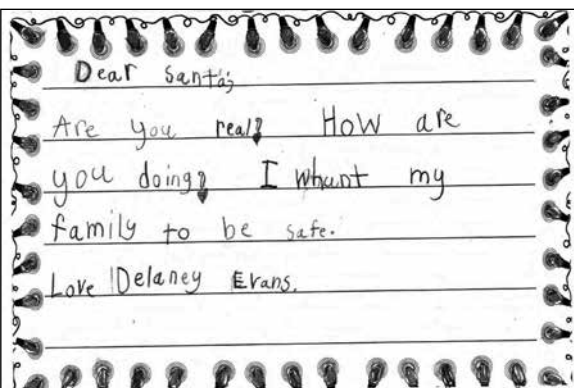 Dear Santa,
Are you real? How are
you doing? I whant my
family to be safe.
Love Delaney Evans.